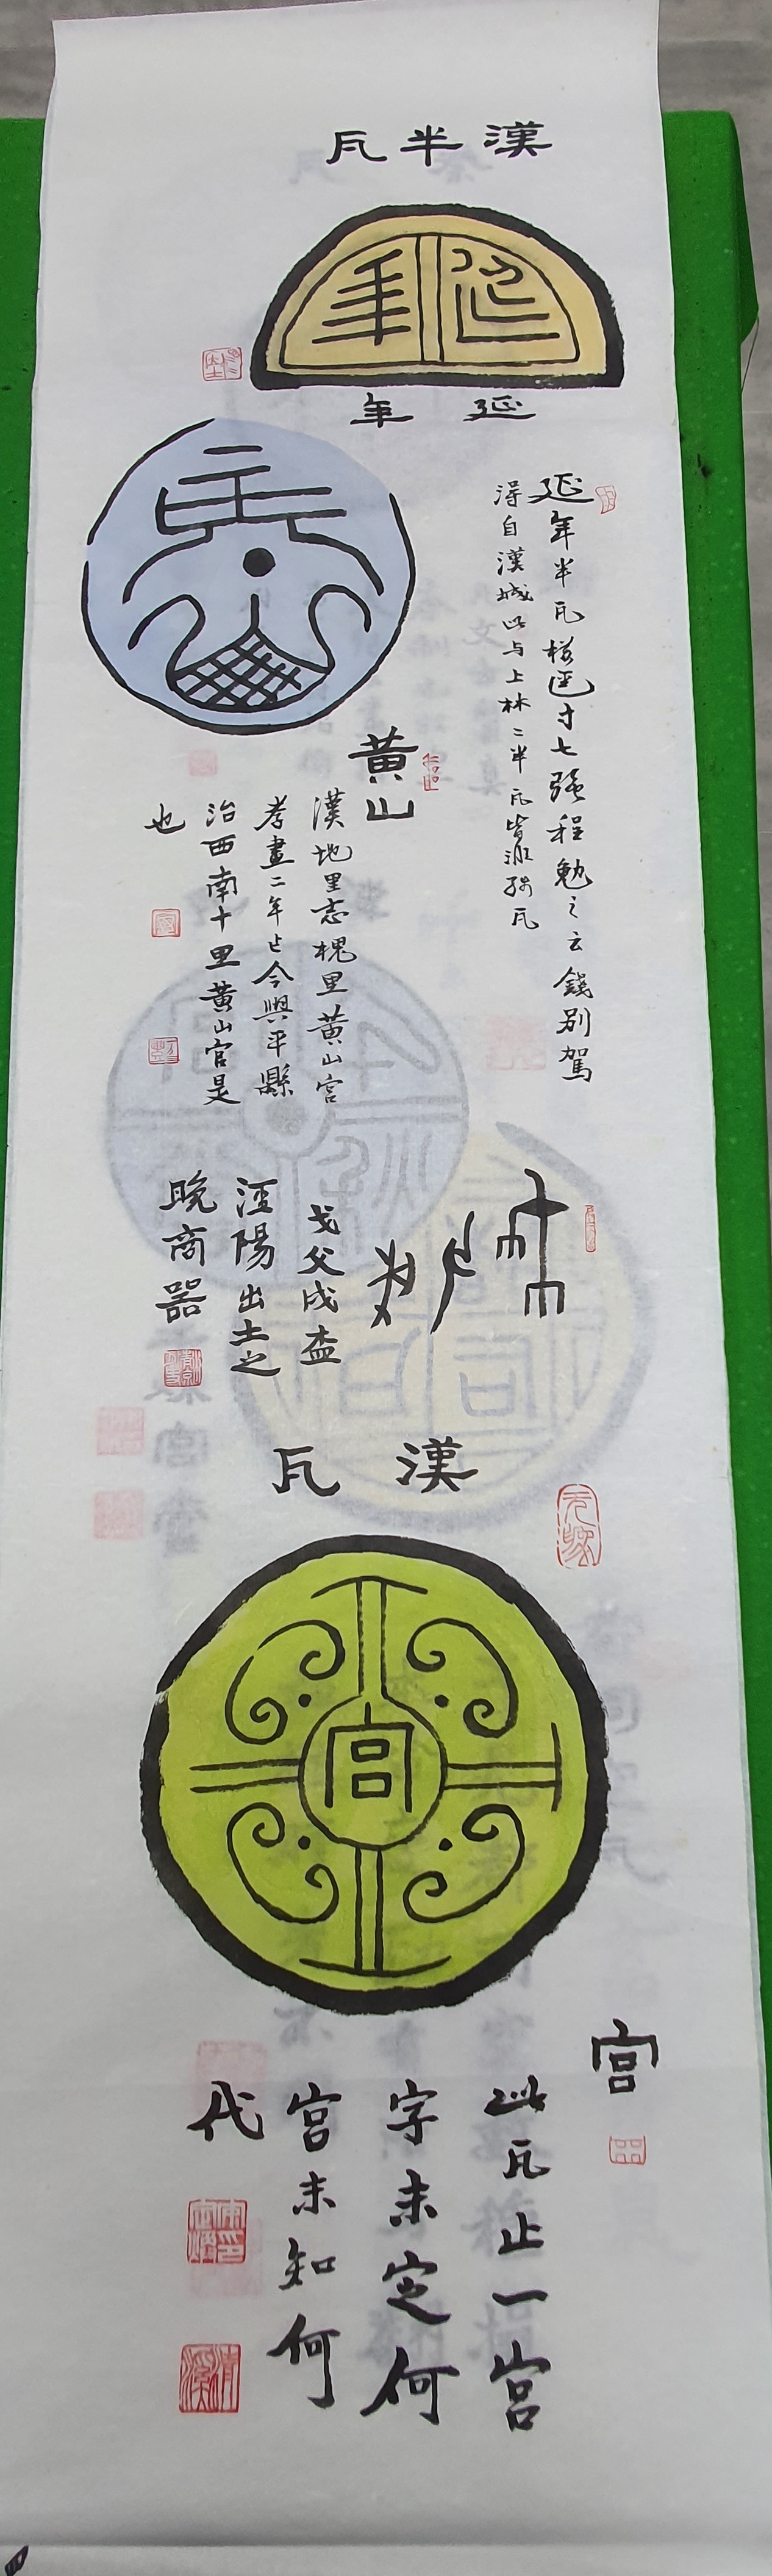 漢半瓦
延年
延年
延年半瓦徑四寸七強程勉之云錢別駕
得自漢城此与上林二半瓦皆
瓦
黃山
漢地里志槐里黃山宮
孝
二年
今興平縣
治西南十里黃山宮是
也
戈父戊盉
涇陽出土之
晚商器
漢瓦
宮
宮
此瓦止一宮
字未定何
宮未知何
代